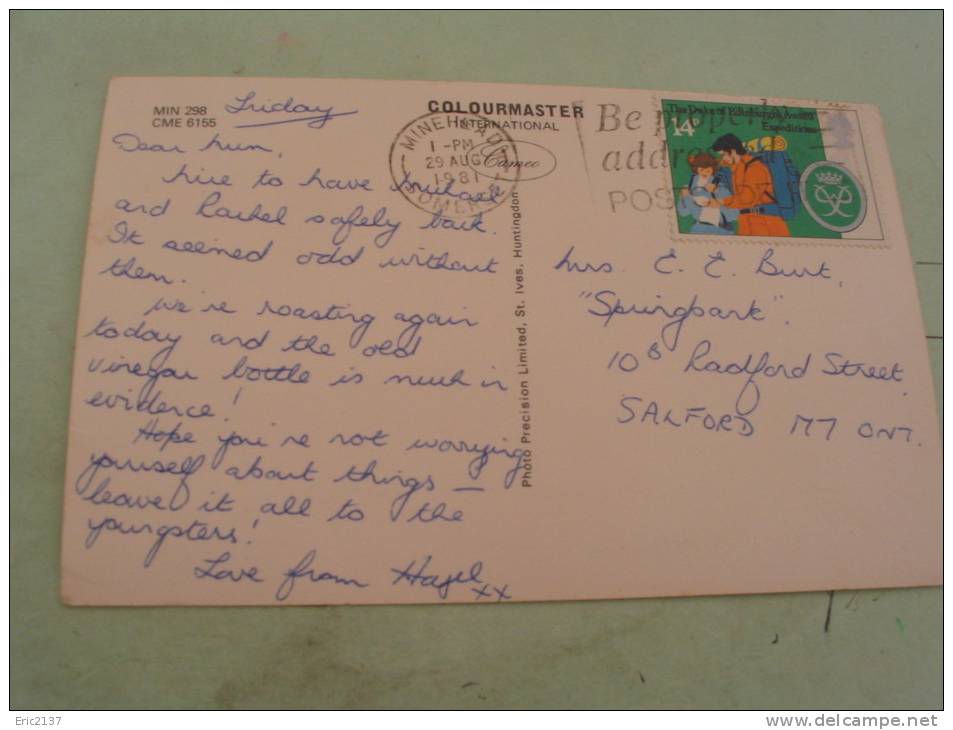 MIN 298
CME 6155
Friday
Dear Mum,
Nice to have Michael
and Rachel safely back.
It seemed odd without
them.
We're roasting again
today and the old
vinegar bottle is much in
evidence!
Hope you're not worrying
yourself about things —
leave it all to the
youngsters!
Love from Hazel
xx
COLOURMASTER
INTERNATIONAL
Cameo
MINEHEAD
1 -PM
29 AUG
1981
SOMERSET
Photo Precision Limited, St. Ives, Huntingdon
Be properly
addressed
POSTCODE
The Duke of Edinburgh's Award
Expeditions
14P
Mrs. E. E. Burt,
"Springbank".
108 Radford Street
SALFORD M7 0NT.
Eric2137
www.delcampe.net